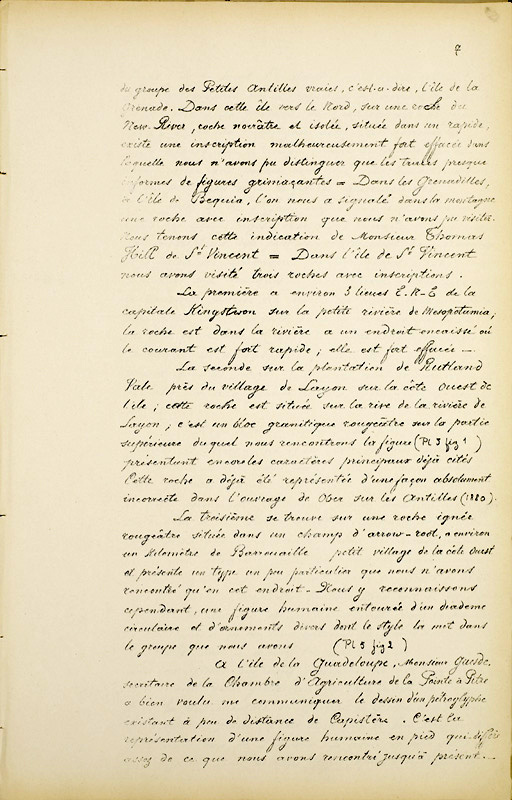 7
du groupe des Petites Antilles vraies, c'est-a-dire, l'île de la
Grenade. Dans cette île vers le Nord, sur une roche du
New-River, roche noirâtre et isolée, située dans un rapide,
existe une inscription malheureusement fort effacée dans
laquelle nous n'avons pu distinguer que les traces presque
informes de figures grimaçantes = Dans les Grenadilles,
à l'île de Bequia, l'on nous a signalé dans la montagne
une roche avec inscription que nous n'avons pu visiter.
Nous tenons cette indication de Monsieur Thomas
Hill de St Vincent = Dans l'île de St Vincent
nous avons visité trois roches avec inscriptions.
La première a environ 3 lieues E.N-E de la
capitale Kingstown sur la petite rivière de Mesopotamia;
la roche est dans la rivière a un endroit encaissé où
le courant est fort rapide; elle est fort effacée —
La seconde sur la plantation de Rutland
Vale près du village de Layon sur la côte Ouest de
l'île; cette roche est située sur la rive de la rivière de
Layon; c'est un bloc granitique rougeâtre sur la partie
supérieure duquel nous rencontrons la figure (Pl 3 fig 1)
présentant encore les caractères principaux déjà cités
Cette roche a déjà été représentée d'une façon absolument
incorrecte dans l'ouvrage de Ober sur les Antilles (1880).
La troisième se trouve sur une roche ignée
rougeâtre située dans un champ d'arrow-root, a environ
un kilomètre de Barrouaille petit village de la côte Ouest
et présente un type un peu particulier que nous n'avons
rencontré qu'en cet endroit - Nous y reconnaissons
cependant, une figure humaine entourée d'un diademe
circulaire et d'ornements divers dont le style la met dans
le groupe que nous avons (Pl 3 fig 2)
A l'île de la Guadeloupe, Monsieur Guesde,
secrétaire de la Chambre d'Agriculture de la Pointe à Pitre
a bien voulu me communiquer le dessin d'un pétroglyphe
existant à peu de distance de Capistère. C'est la
représentation d'une figure humaine en pied qui diffère
assez de ce que nous avons rencontré jusqu'à présent. —